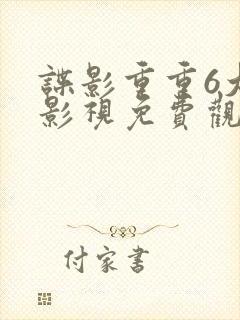 諜影重重6大
影視免費觀
付家書